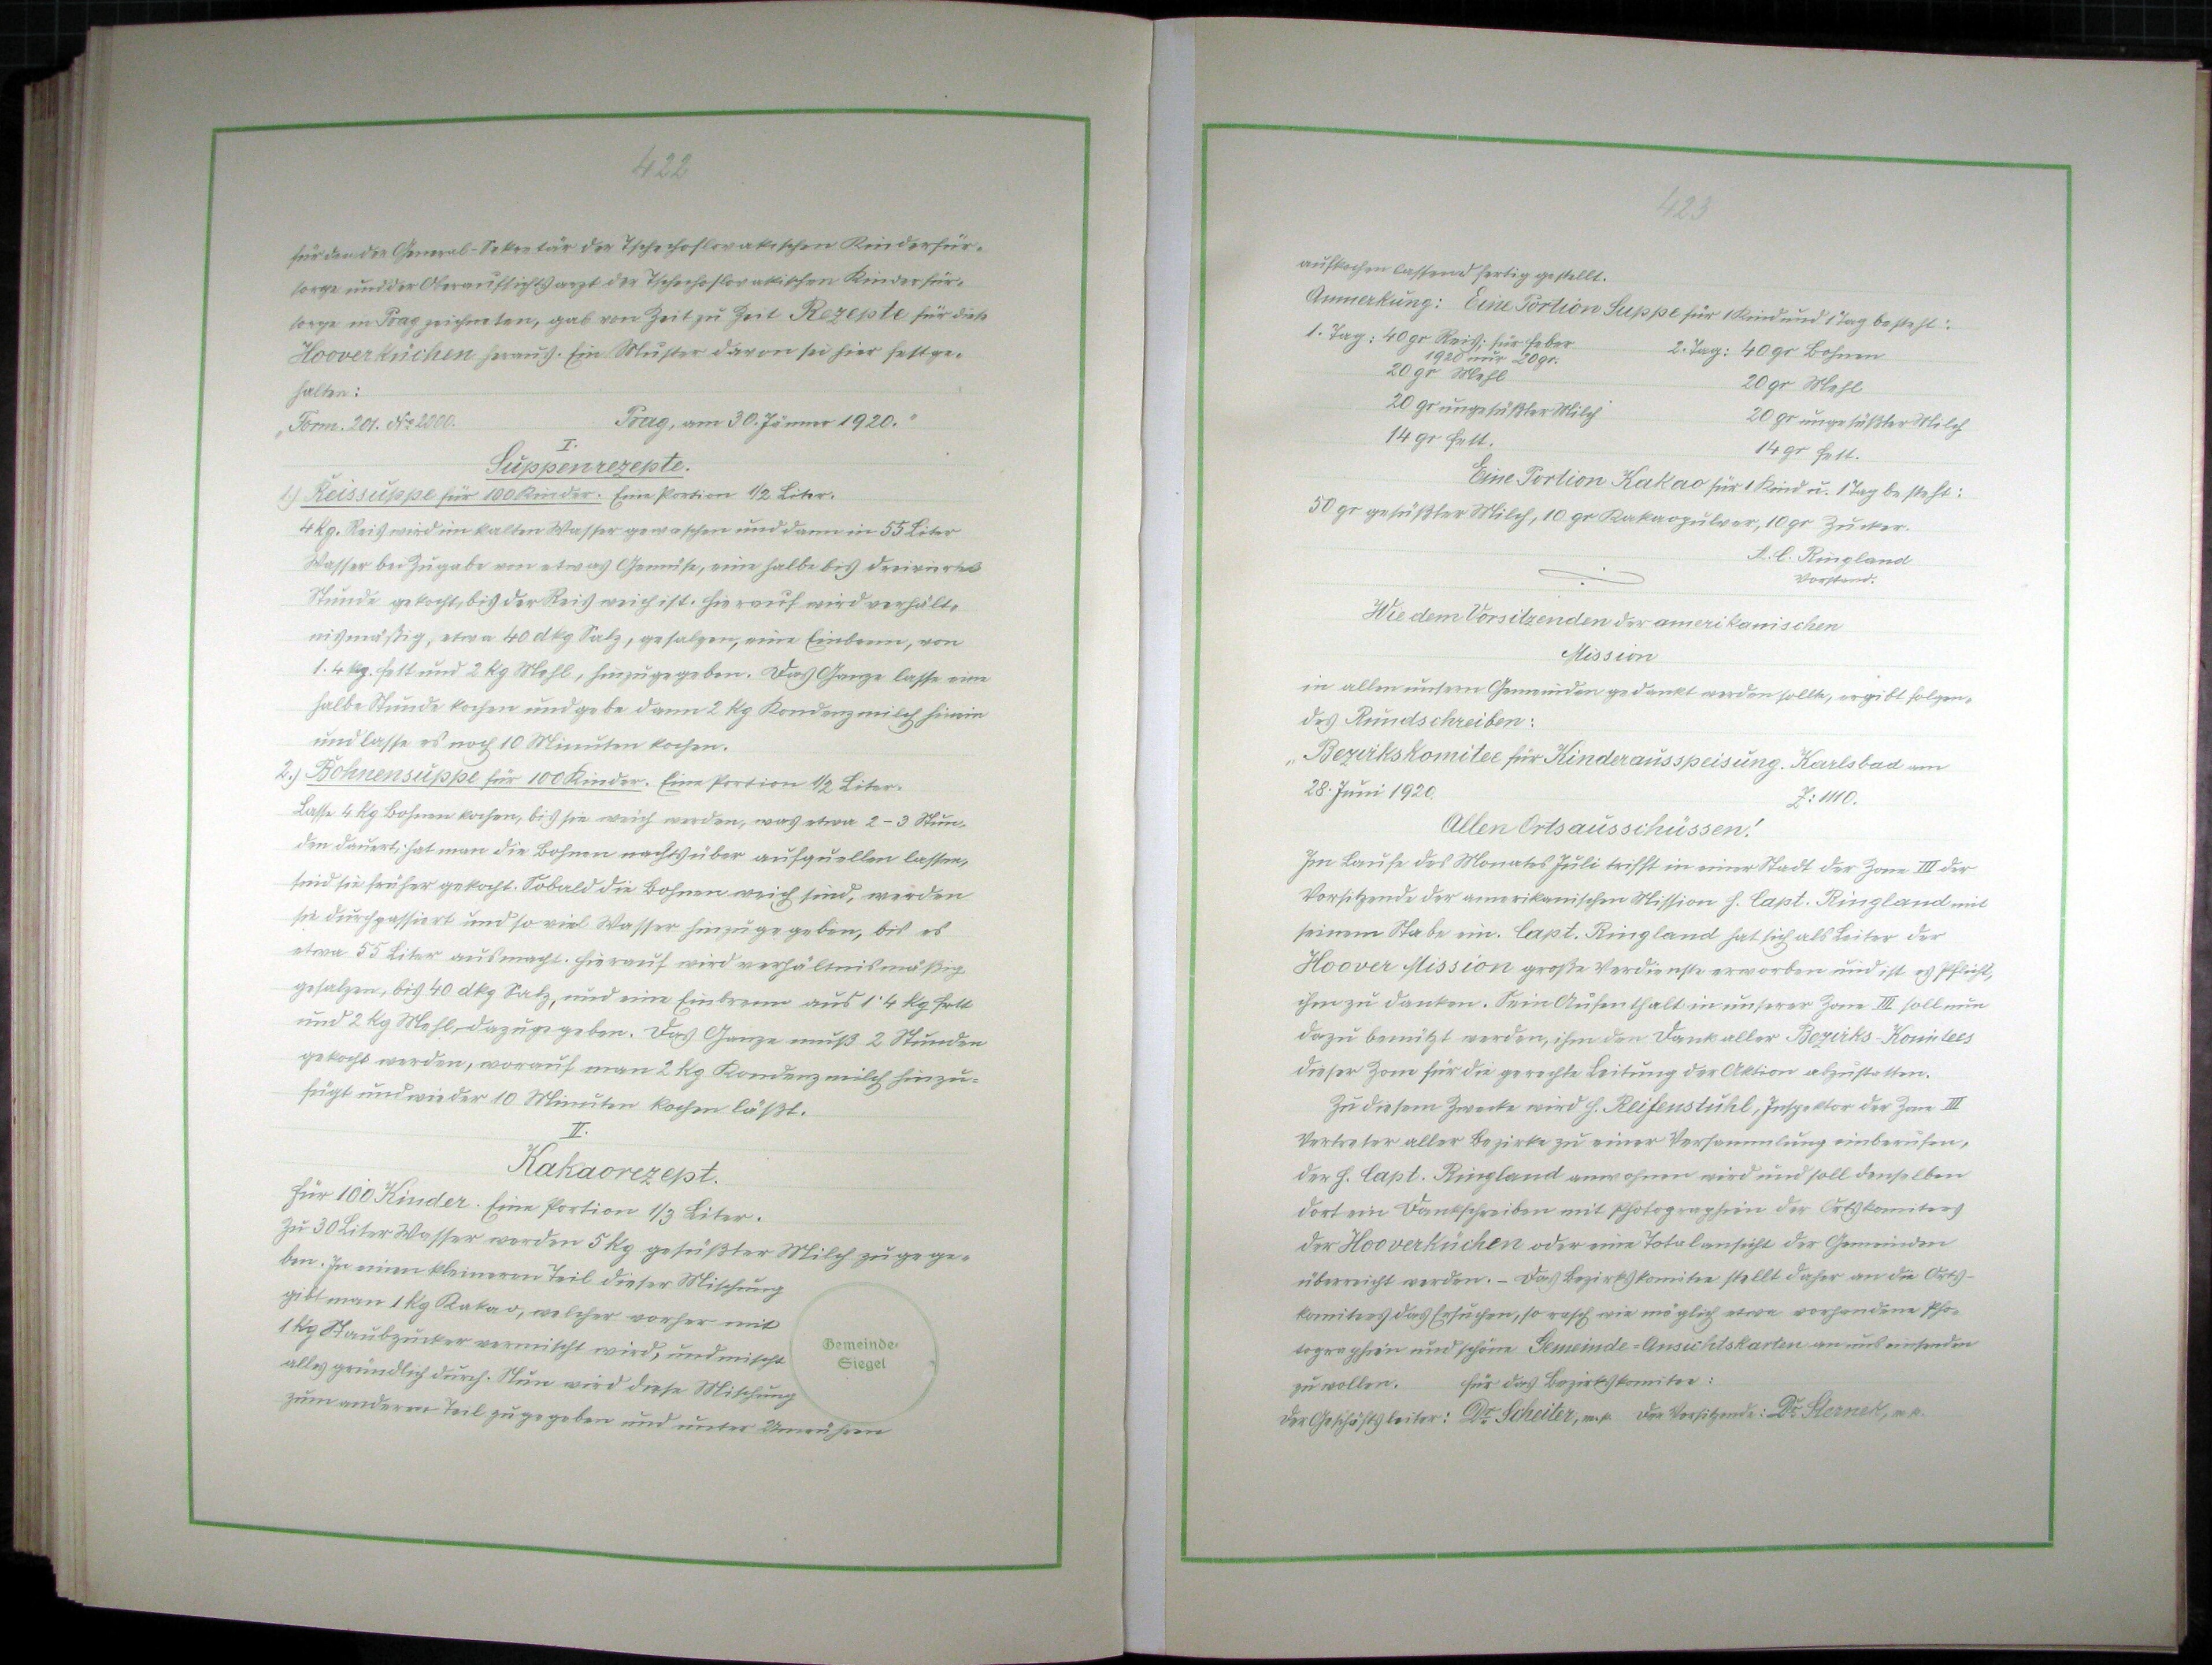 422
für den der General-Sekretär der Tschechoslovakischen Kinderfür-
sorge und der Oberaufsichtsarzt der Tschechoslovakischen Kinderfür-
sorge in Prag zeichneten, gab von Zeit zu Zeit Rezepte für diese
Hooverküchen heraus. Ein Muster davon sei hier festge-
halten:
„Form. 201. No 2000. Prag, am 30. Jänner 1920."
I.
Suppenrezepte.
1.) Reissuppe für 100 Kinder. Eine Portion 1/2 Liter.
4 kg. Reis wird im kalten Wasser gewaschen und dann in 55 Liter
Wasser bei Zugabe von etwas Gemüse, eine halbe bis dreiviertel
Stunde gekocht, bis der Reis weich ist. Hierauf wird verhält-
nismäßig, etwa 40 dkg Salz, gesalzen, eine Einbrenn, von
1.4 kg. Fett und 2 kg Mehl, hinzugegeben. Das Ganze lasse eine
halbe Stunde kochen und gebe dann 2 kg Kondenzmilch hinein
und lasse es noch 10 Minuten kochen.
2.) Bohnensuppe für 100 Kinder. Eine Portion 1/2 Liter.
Lasse 4 kg Bohnen kochen, bis sie weich werden, was etwa 2-3 Stun-
den dauert; hat man die Bohnen nachtsüber aufquellen lassen,
sind sie früher gekocht. Sobald die Bohnen weich sind, werden
sie durchpassiert und so viel Wasser hinzugegeben, bis es
etwa 55 Liter ausmacht. Hierauf wird verhältnismäßig
gesalzen, bis 40 dkg Salz, und eine Einbrenn aus 1·4 kg Fett
und 2 kg Mehl dazugegeben. Das Ganze muß 2 Stunden
gekocht werden, worauf man 2 kg Kondenzmilch hinzu-
fügt und wieder 10 Minuten kochen läßt.
II.
Kakaorezept.
Für 100 Kinder. Eine Portion 1/3 Liter.
Zu 30 Liter Wasser werden 5 kg gesüßter Milch zugege-
ben. In einen kleineren Teil dieser Mischung
gibt man 1 kg Kakao, welcher vorher mit
1 kg Staubzucker vermischt wird, und mischt
alles gründlich durch. Nun wird diese Mischung
zum anderen Teil zugegeben und unter Umrühren
Gemeinde-
Siegel
423
aufkochen lassend fertig gestellt.
Anmerkung: Eine Portion Suppe für 1 Kind und 1 Tag besteht:
1. Tag: 40 gr Reis, für Feber 2. Tag: 40 gr Bohnen
1920 nur 20 gr.
20 gr Mehl 20 gr Mehl
20 gr ungesüßter Milch 20 gr ungesüßter Milch
14 gr Fett. 14 gr Fett.
Eine Portion Kakao für 1 Kind u. 1 Tag besteht:
50 gr gesüßter Milch, 10 gr Kakaopulver, 10 gr Zucker.
A. C. Ringland
Vorstand.
Wie dem Vorsitzenden der amerikanischen
Mission
in allen unsern Gemeinden gedankt werden sollte, ergibt folgen-
des Rundschreiben:
„Bezirkskomitee für Kinderausspeisung. Karlsbad am
28. Juni 1920. Z: 1110.
Allen Ortsausschüssen!
Im Laufe des Monates Juli trifft in einer Stadt der Zone III der
Vorsitzende der amerikanischen Mission H. Capt. Ringland mit
seinem Stabe ein. Capt. Ringland hat sich als Leiter der
Hoover Mission große Verdienste erworben und ist es Pflicht,
ihm zu danken. Sein Aufenthalt in unserer Zone III soll nun
dazu benützt werden, ihm den Dank aller Bezirks-Komitees
dieser Zone für die gerechte Leitung der Aktion abzustatten.
Zu diesem Zwecke wird H. Reifenstuhl, Inspektor der Zone III
Vertreter aller Bezirke zu einer Versammlung einberufen,
der H. Capt. Ringland anwohnen wird und soll denselben
dort ein Dankschreiben mit Photographien der Ortskomitees
der Hooverküchen oder eine Totalansicht der Gemeinden
überreicht werden. - Das Bezirkskomitee stellt daher an die Orts-
komitees das Ersuchen, so rasch wie möglich etwa vorhandene Pho-
tographien und schöne Gemeinde-Ansichtskarten an uns einsenden
zu wollen. Für das Bezirkskomitee:
Der Geschäftsleiter: Dr. Scheiter, m.p. Der Vorsitzende: Dr. Sternek, m.p.